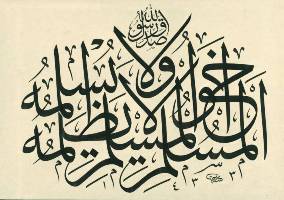 المسلم أخو المسلم لا يظلمه ولا يسلمه
صدق رسول الله